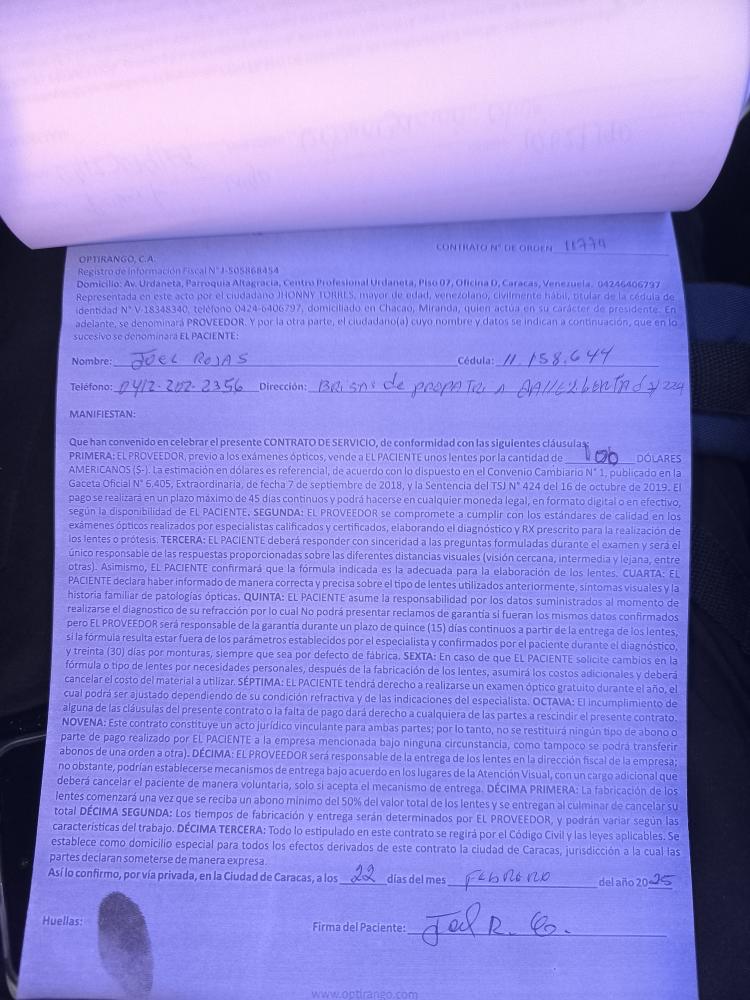 CONTRATO N° DE ORDEN 11779
OPTIRANGO, C.A.
Registro de Información Fiscal N° J-505868454
Domicilio: Av. Urdaneta, Parroquia Altagracia, Centro Profesional Urdaneta, Piso 07, Oficina D, Caracas, Venezuela. 04246406797
Representada en este acto por el ciudadano JHONNY TORRES, mayor de edad, venezolano, civilmente hábil, titular de la cédula de
identidad N° V-18348340, teléfono 0424-6406797, domiciliado en Chacao, Miranda, quien actúa en su carácter de presidente. En
adelante, se denominará PROVEEDOR. Y por la otra parte, el ciudadano(a) cuyo nombre y datos se indican a continuación, que en lo
sucesivo se denominará EL PACIENTE:
Nombre: Joel Rojas Cédula: 11.158.644
Teléfono: 0412-202-2356 Dirección: Brisas de propatria
MANIFIESTAN:
Que han convenido en celebrar el presente CONTRATO DE SERVICIO, de conformidad con las siguientes cláusulas
PRIMERA: EL PROVEEDOR, previo a los exámenes ópticos, vende a EL PACIENTE unos lentes por la cantidad de 100 DÓLARES
AMERICANOS ($-). La estimación en dólares es referencial, de acuerdo con lo dispuesto en el Convenio Cambiario N° 1, publicado en la
Gaceta Oficial N° 6.405, Extraordinaria, de fecha 7 de septiembre de 2018, y la Sentencia del TSJ N° 424 del 16 de octubre de 2019. El
pago se realizará en un plazo máximo de 45 días continuos y podrá hacerse en cualquier moneda legal, en formato digital o en efectivo,
según la disponibilidad de EL PACIENTE. SEGUNDA: EL PROVEEDOR se compromete a cumplir con los estándares de calidad en los
exámenes ópticos realizados por especialistas calificados y certificados, elaborando el diagnóstico y RX prescrito para la realización de
los lentes o prótesis. TERCERA: EL PACIENTE deberá responder con sinceridad a las preguntas formuladas durante el examen y será el
único responsable de las respuestas proporcionadas sobre las diferentes distancias visuales (visión cercana, intermedia y lejana, entre
otras). Asimismo, EL PACIENTE confirmará que la fórmula indicada es la adecuada para la elaboración de los lentes. CUARTA: EL
PACIENTE declara haber informado de manera correcta y precisa sobre el tipo de lentes utilizados anteriormente, síntomas visuales y la
historia familiar de patologías ópticas. QUINTA: EL PACIENTE asume la responsabilidad por los datos suministrados al momento de
realizarse el diagnostico de su refracción por lo cual No podrá presentar reclamos de garantía si fueran los mismos datos confirmados
pero EL PROVEEDOR será responsable de la garantía durante un plazo de quince (15) días continuos a partir de la entrega de los lentes,
si la fórmula resulta estar fuera de los parámetros establecidos por el especialista y confirmados por el paciente durante el diagnóstico,
y treinta (30) días por monturas, siempre que sea por defecto de fábrica. SEXTA: En caso de que EL PACIENTE solicite cambios en la
fórmula o tipo de lentes por necesidades personales, después de la fabricación de los lentes, asumirá los costos adicionales y deberá
cancelar el costo del material a utilizar. SÉPTIMA: EL PACIENTE tendrá derecho a realizarse un examen óptico gratuito durante el año, el
cual podrá ser ajustado dependiendo de su condición refractiva y de las indicaciones del especialista. OCTAVA: El incumplimiento de
alguna de las cláusulas del presente contrato o la falta de pago dará derecho a cualquiera de las partes a rescindir el presente contrato.
NOVENA: Este contrato constituye un acto jurídico vinculante para ambas partes; por lo tanto, no se restituirá ningún tipo de abono o
parte de pago realizado por EL PACIENTE a la empresa mencionada bajo ninguna circunstancia, como tampoco se podrá transferir
abonos de una orden a otra). DÉCIMA: EL PROVEEDOR será responsable de la entrega de los lentes en la dirección fiscal de la empresa;
no obstante, podrían establecerse mecanismos de entrega bajo acuerdo en los lugares de la Atención Visual, con un cargo adicional que
deberá cancelar el paciente de manera voluntaria, solo si acepta el mecanismo de entrega. DÉCIMA PRIMERA: La fabricación de los
lentes comenzará una vez que se reciba un abono mínimo del 50% del valor total de los lentes y se entregan al culminar de cancelar su
total DÉCIMA SEGUNDA: Los tiempos de fabricación y entrega serán determinados por EL PROVEEDOR, y podrán variar según las
características del trabajo. DÉCIMA TERCERA: Todo lo estipulado en este contrato se regirá por el Código Civil y las leyes aplicables. Se
establece como domicilio especial para todos los efectos derivados de este contrato la ciudad de Caracas, jurisdicción a la cual las
partes declaran someterse de manera expresa.
Así lo confirmo, por vía privada, en la Ciudad de Caracas, a los 22 días del mes Febrero del año 2025
Huellas: Firma del Paciente: Joel R. G.
www.optirango.com